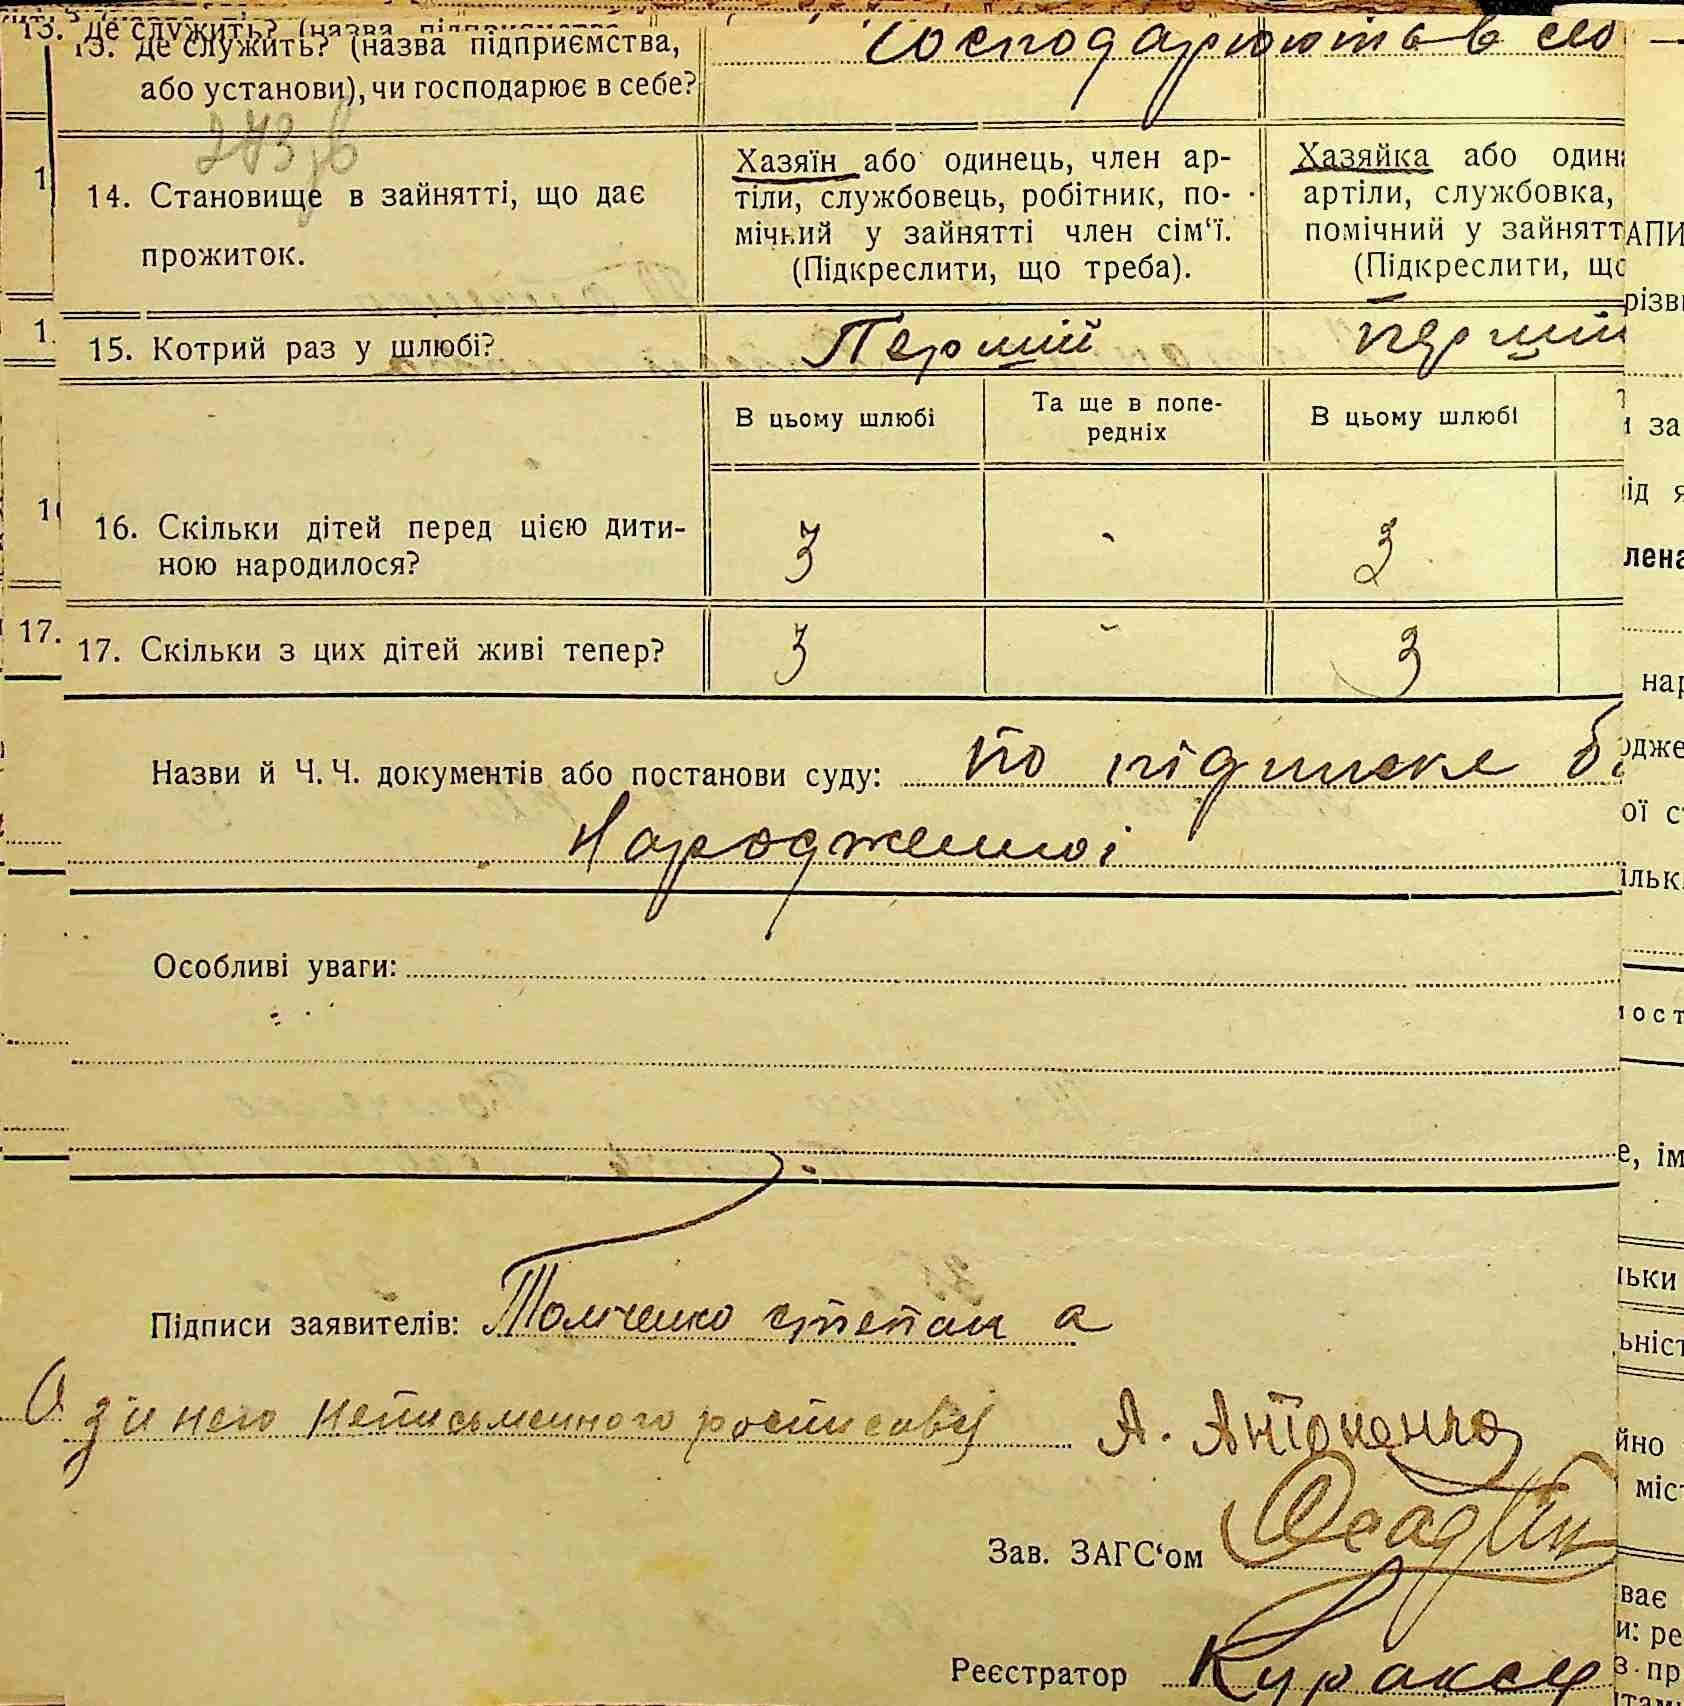 13. Де служить? (назва підприємства, Господарюють в
або установи), чи господарює в себе?
14. Становище в зайнятті, що дає
прожиток.
Хазяїн або одинець, член ар-
тіли, службовець, робітник, по-
мічний у зайнятті член сім‘ї.
(Підкреслити, що треба).
Хазяйка або один
артіли, службовка,
помічний у зайнятт
(Підкреслити, що
15. Котрий раз у шлюбі? Перший перший
В цьому шлюбі
Та ще в попе-
редніх
В цьому шлюбі
16. Скільки дітей перед цією дити-
ною народилося?
3 - 3
17. Скільки з цих дітей живі тепер? 3 - 3
Назви й Ч. Ч. документів або постанови суду: по підписке
Народженноі
Особливі уваги:
Підписи заявителів: Толченко степан а
за него неписьменного росписавсь А. Антоненко
Зав. ЗАГС‘ом
Реєстратор